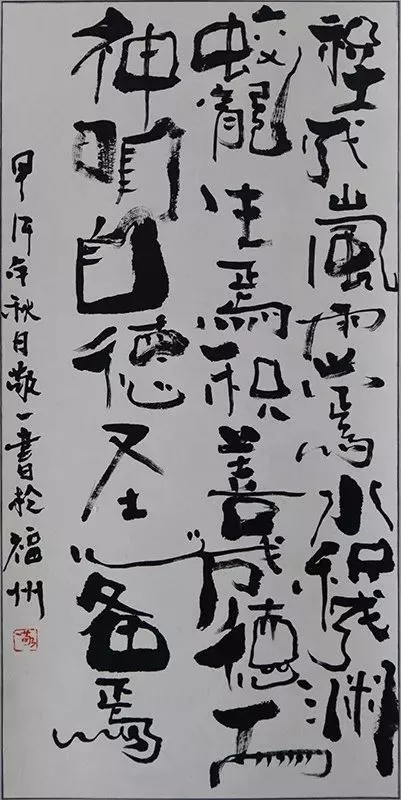 积土成山風雨兴焉水积成渊
蛟龍生焉积善成德而
神明自德圣心备焉
甲午年秋日敬一書於福州